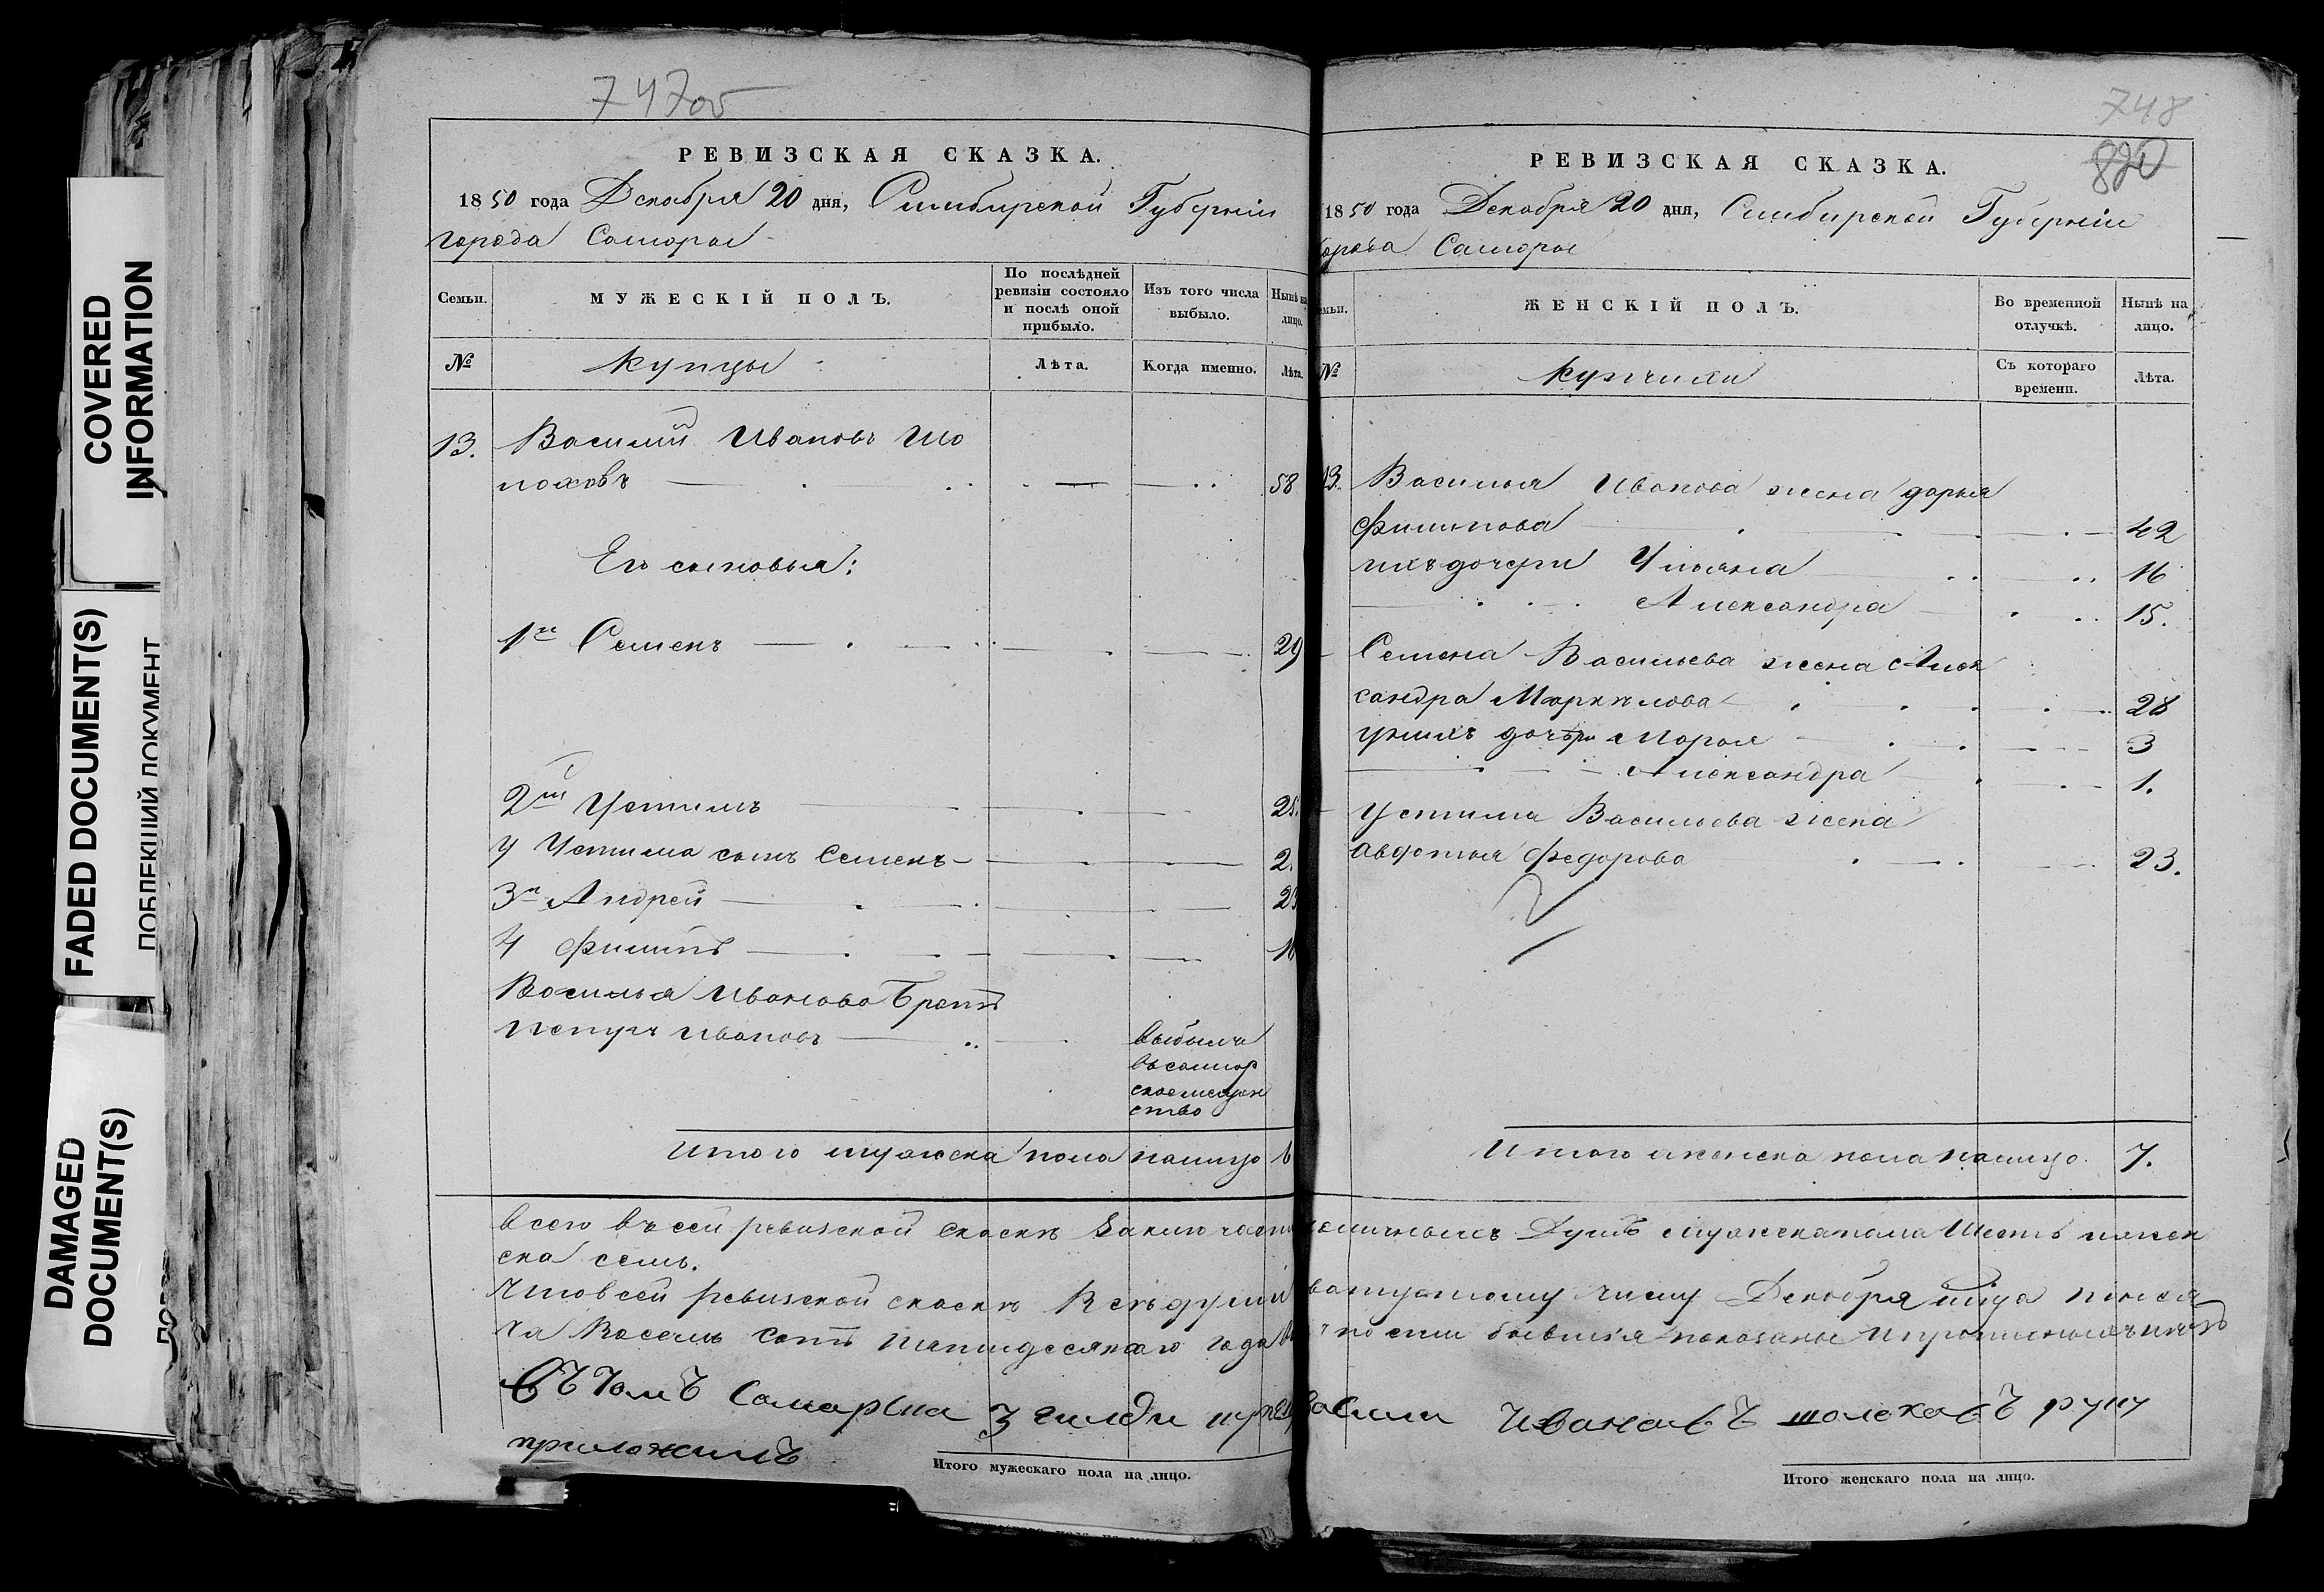 COVERED
INFORMATION
FADED DOCUMENT(S)
DAMAGED
DOCUMENT(S)
747об
РЕВИЗСКАЯ СКАЗКА.
1850 года Декабря 20 дня, Симбирской Губерніи
города Самары
Семьи.
МУЖЕСКІЙ ПОЛЪ.
По послѣдней
ревизіи состояло
и послѣ оной
прибыло.
Изъ того числа
выбыло.
Нынѣ на
лицо.
№
Купцы
Лѣта.
Когда именно.
Лѣта.
13. Василий Ивановъ Шо
лоховъ 58
Его сыновья:
1й Семенъ 29
2й Устимъ 25.
У Устима сынъ Семенъ 2.
3й Андрей 23
4 Филипъ 16
Василья Иванова Братъ
Петръ Ивановъ выбылъ
въ самар
ское мещан
ство
Итого мужска пола налицо 6
748
820
РЕВИЗСКАЯ СКАЗКА.
1850 года Декабря 20 дня, Симбирской Губерніи
города Самары
емьи.
ЖЕНСКІЙ ПОЛЪ.
Во временной
отлучкѣ.
Нынѣ на
лицо.
№
Купчихи
Съ котораго
времени.
Лѣта.
13. Василья Иванова жена дарья
Филипова 42
ихъ дочери Ульяна 16
Александра 15.
Семена Васильева жена Алек
сандра Маркилова 28
у нихъ дочери Марья 3
Александра 1.
Устима Васильева жена
Авдотья Федорова 23.
Итого женска пола налицо. 7.
всего въ сей ревизской скаскѣ Заключаетъ наличныхъ Душъ мужска пола Шесть и женск
ска семь.
Что в сей ревизской скаскѣ Къ двадцатому числу Декабря мца тыся
ча Восемь сотъ пятидесятаго года
Въ томъ Самарска 3 гилди купец Васили Ивановъ шолоховъ руку
приложилъ
Итого мужескаго пола на лицо.
Итого женскаго пола на лицо.